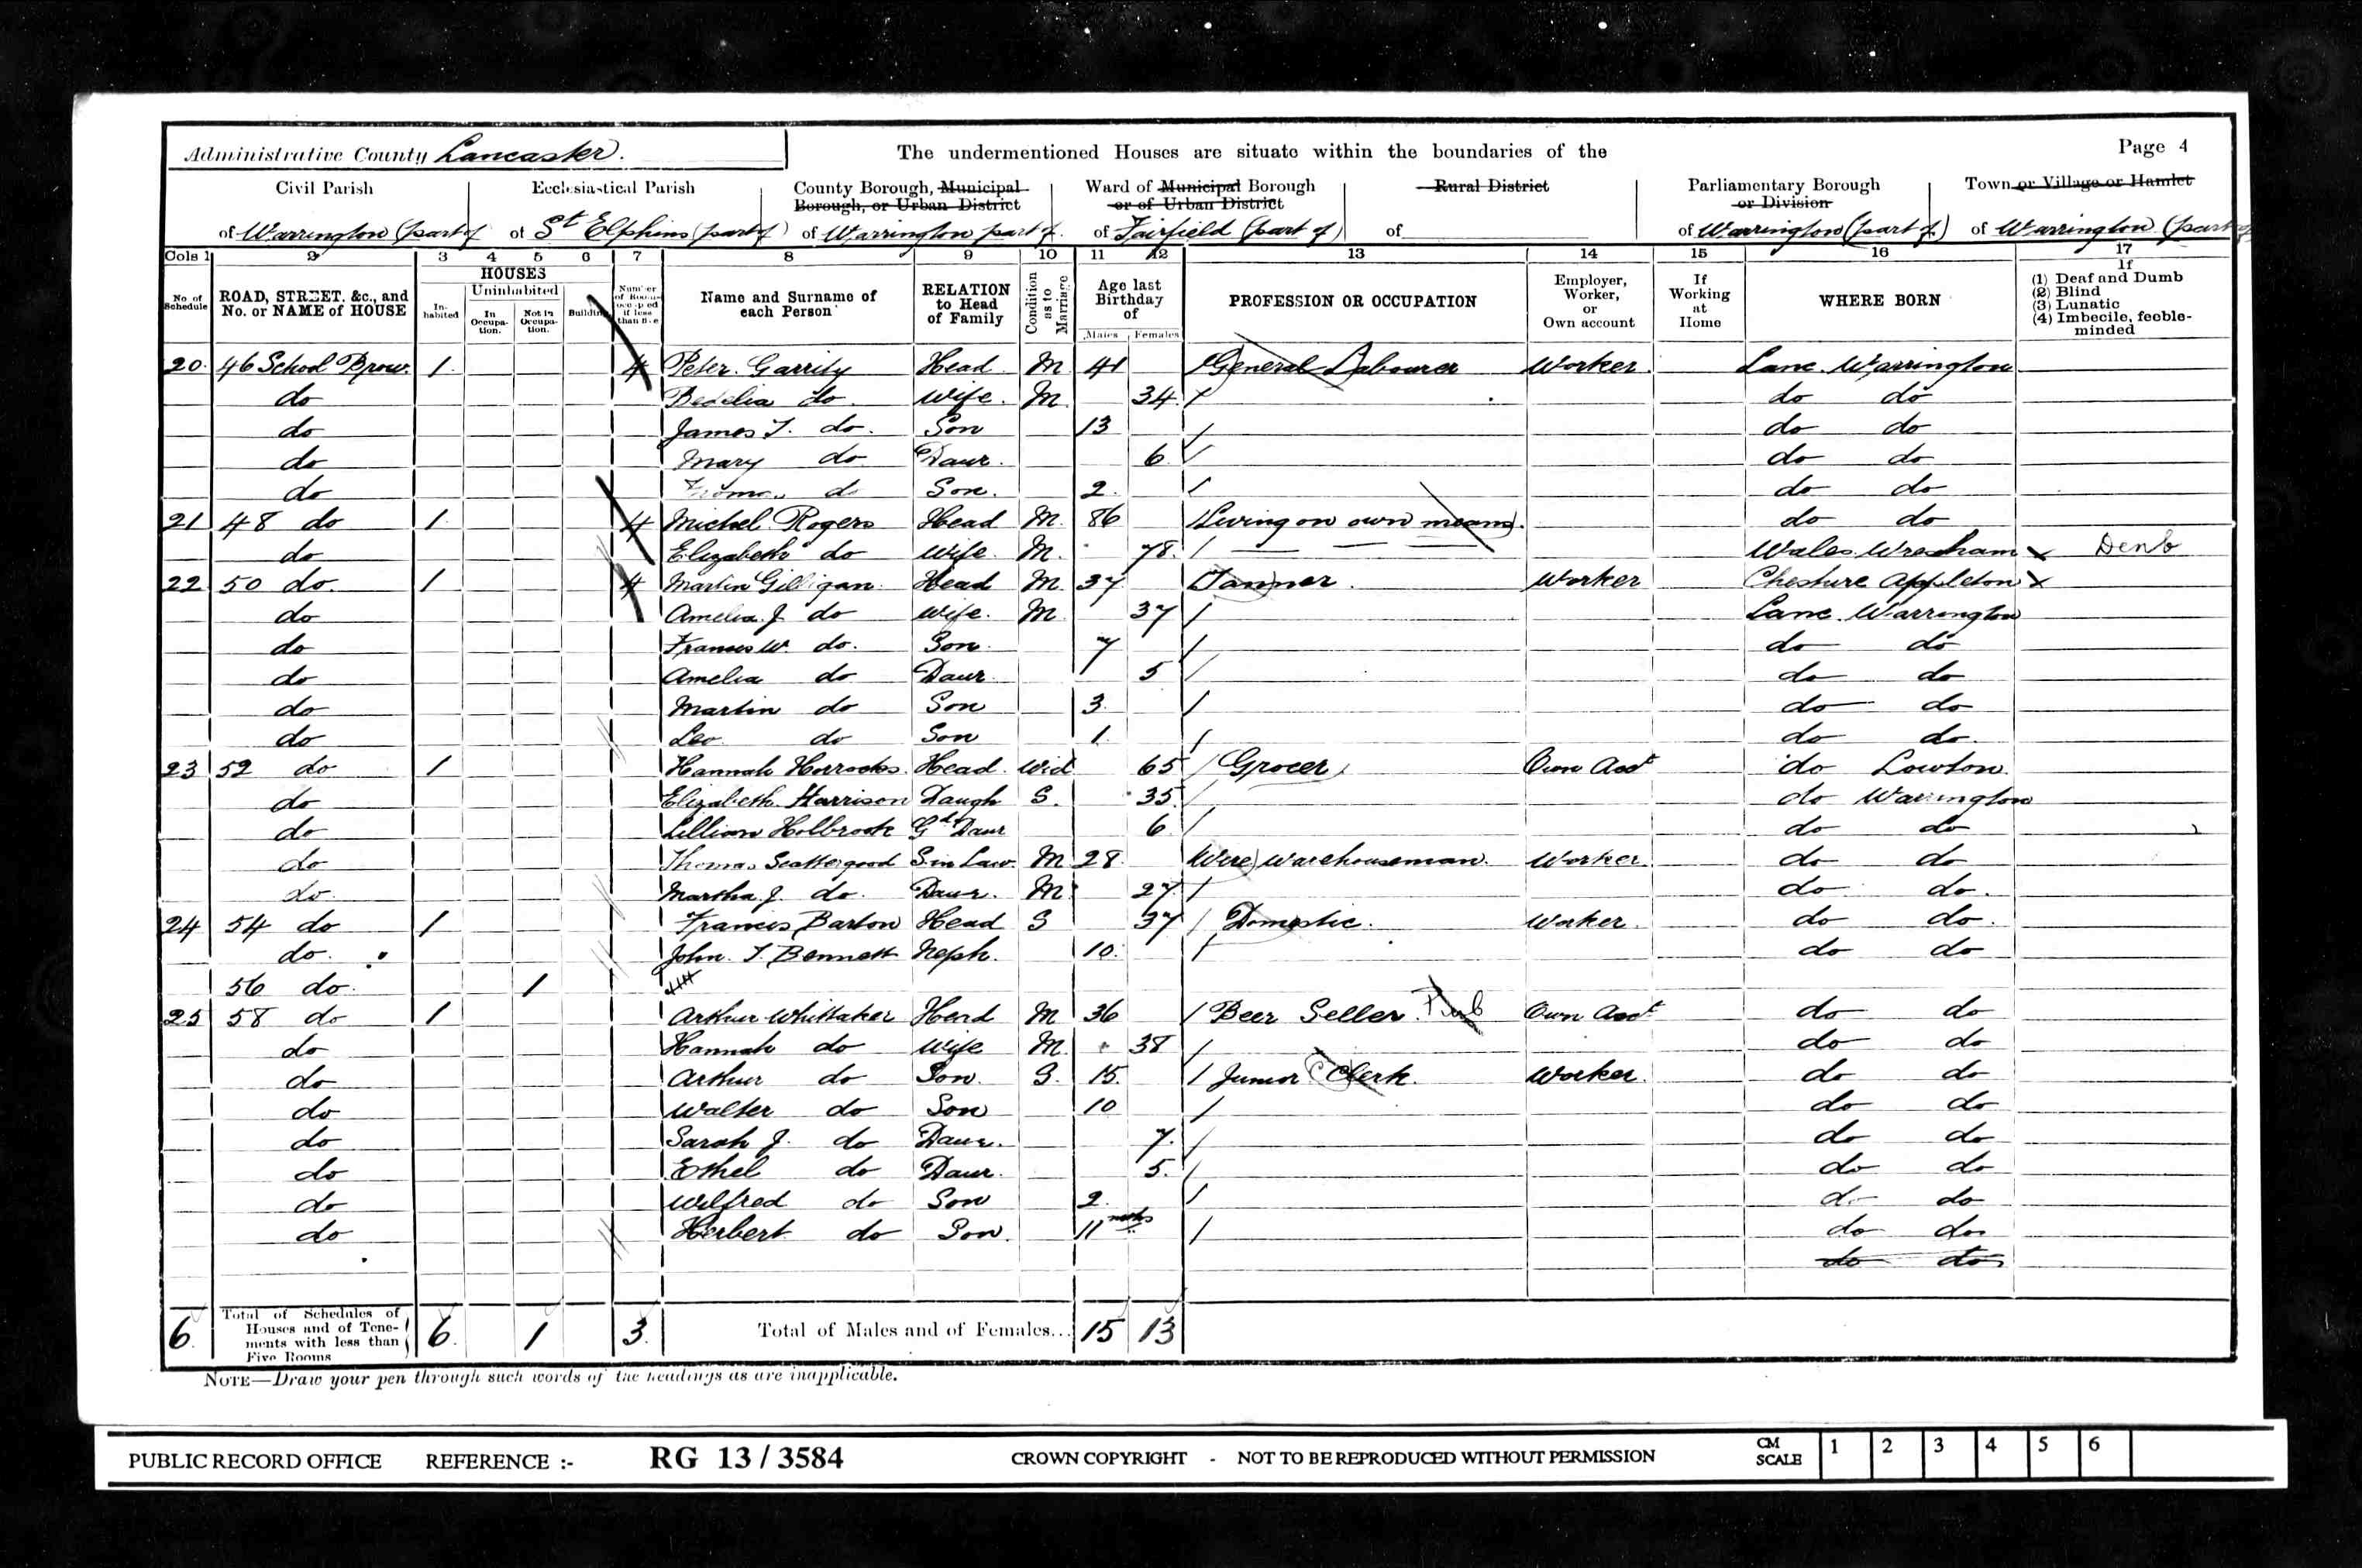 Administrative County Lancaster. The undermentioned Houses are situate within the boundaries of the Page 4
Civil Parish Ecclesiastical Parish County Borough, Municipal Borough, or Urban District Ward of Municipal Borough or of Urban District Rural District Parliamentary Borough or Division Town or Village or Hamlet
of Warrington (part of of St Elphins (part of) of Warrington part of. of Fairfield (part of) of of Warrington (part of) of Warrington (part of
Cols 1 2 3 4 5 6 7 8 9 10 11 12 13 14 15 16 17
No. of Schedule ROAD, STREET, &c., and No. or NAME of HOUSE HOUSES In-habited Uninhabited In Occupa-tion. Not in Occupa-tion. Building Number of Rooms occupied if less than five Name and Surname of each Person RELATION to Head of Family Condition as to Marriage Age last Birthday of Males Females PROFESSION OR OCCUPATION Employer, Worker, or Own account If Working at Home WHERE BORN If (1) Deaf and Dumb (2) Blind (3) Lunatic (4) Imbecile, feeble-minded
20. 46 School Brow. 1. 4 Peter Garrity Head M 41 General Labourer Worker. Lanc. Warrington
do Bedelia do. Wife. M. 34. do do
do James T. do. Son 13 do do
do Mary do Daur. 6 do do
do do Son. 2. do do
21 48 do 1. 4 Michel Rogers Head M. 86 Living on own means. do do
do Elizabeth do Wife. M. 78. Wales Wrexham x Denb
22 50 do. 1 4 Martin Gilligan Head M. 37 Tanner. Worker Cheshire Appleton x
do Amelia J. do Wife. M. 37 Lanc. Warrington
do Francis W. do. Son. 7 do do
do Amelia do Daur. 5 do do
do Martin do Son 3. do do
do Leo do Son 1. do do.
23 52 do 1 Hannah Horrocks. Head. Wid 65 Grocer Own Acct do Lowton.
do Elizabeth Harrison Daugh S. 35. do Warrington
do Lillian Holbrook Gd Daur 6 do do
do Thomas Scattergood S. in Law. M 28. Wire Warehouseman. Worker. do do
do. Martha J. do. Daur. M. 27. do do.
24 54 do 1 Francis Barton Head S 37 Domestic. Worker. do do.
do. John. T. Bennett Neph. 10. do do
56 do. 1
25 58 do 1 Arthur Whittaker Head M 36 Beer Seller. Pub Own Acct do do
do Hannah do Wife M. 38 do do
do Arthur do Son. S. 15. Junior Clerk. Worker. do do
do Walter do Son 10 do do
do Sarah J. do Daur. 7. do do
do Ethel do Daur. 5. do do
do Wilfred do Son 2. do do
do Herbert do Son. 11 mths do do
do do
6. Total of Schedules of Houses and of Tene-ments with less than Five Rooms 6. 1 3. Total of Males and of Females... 15 13
NOTE—Draw your pen through such words of the headings as are inapplicable.
PUBLIC RECORD OFFICE REFERENCE :- RG 13 / 3584 CROWN COPYRIGHT - NOT TO BE REPRODUCED WITHOUT PERMISSION CM SCALE 1 2 3 4 5 6